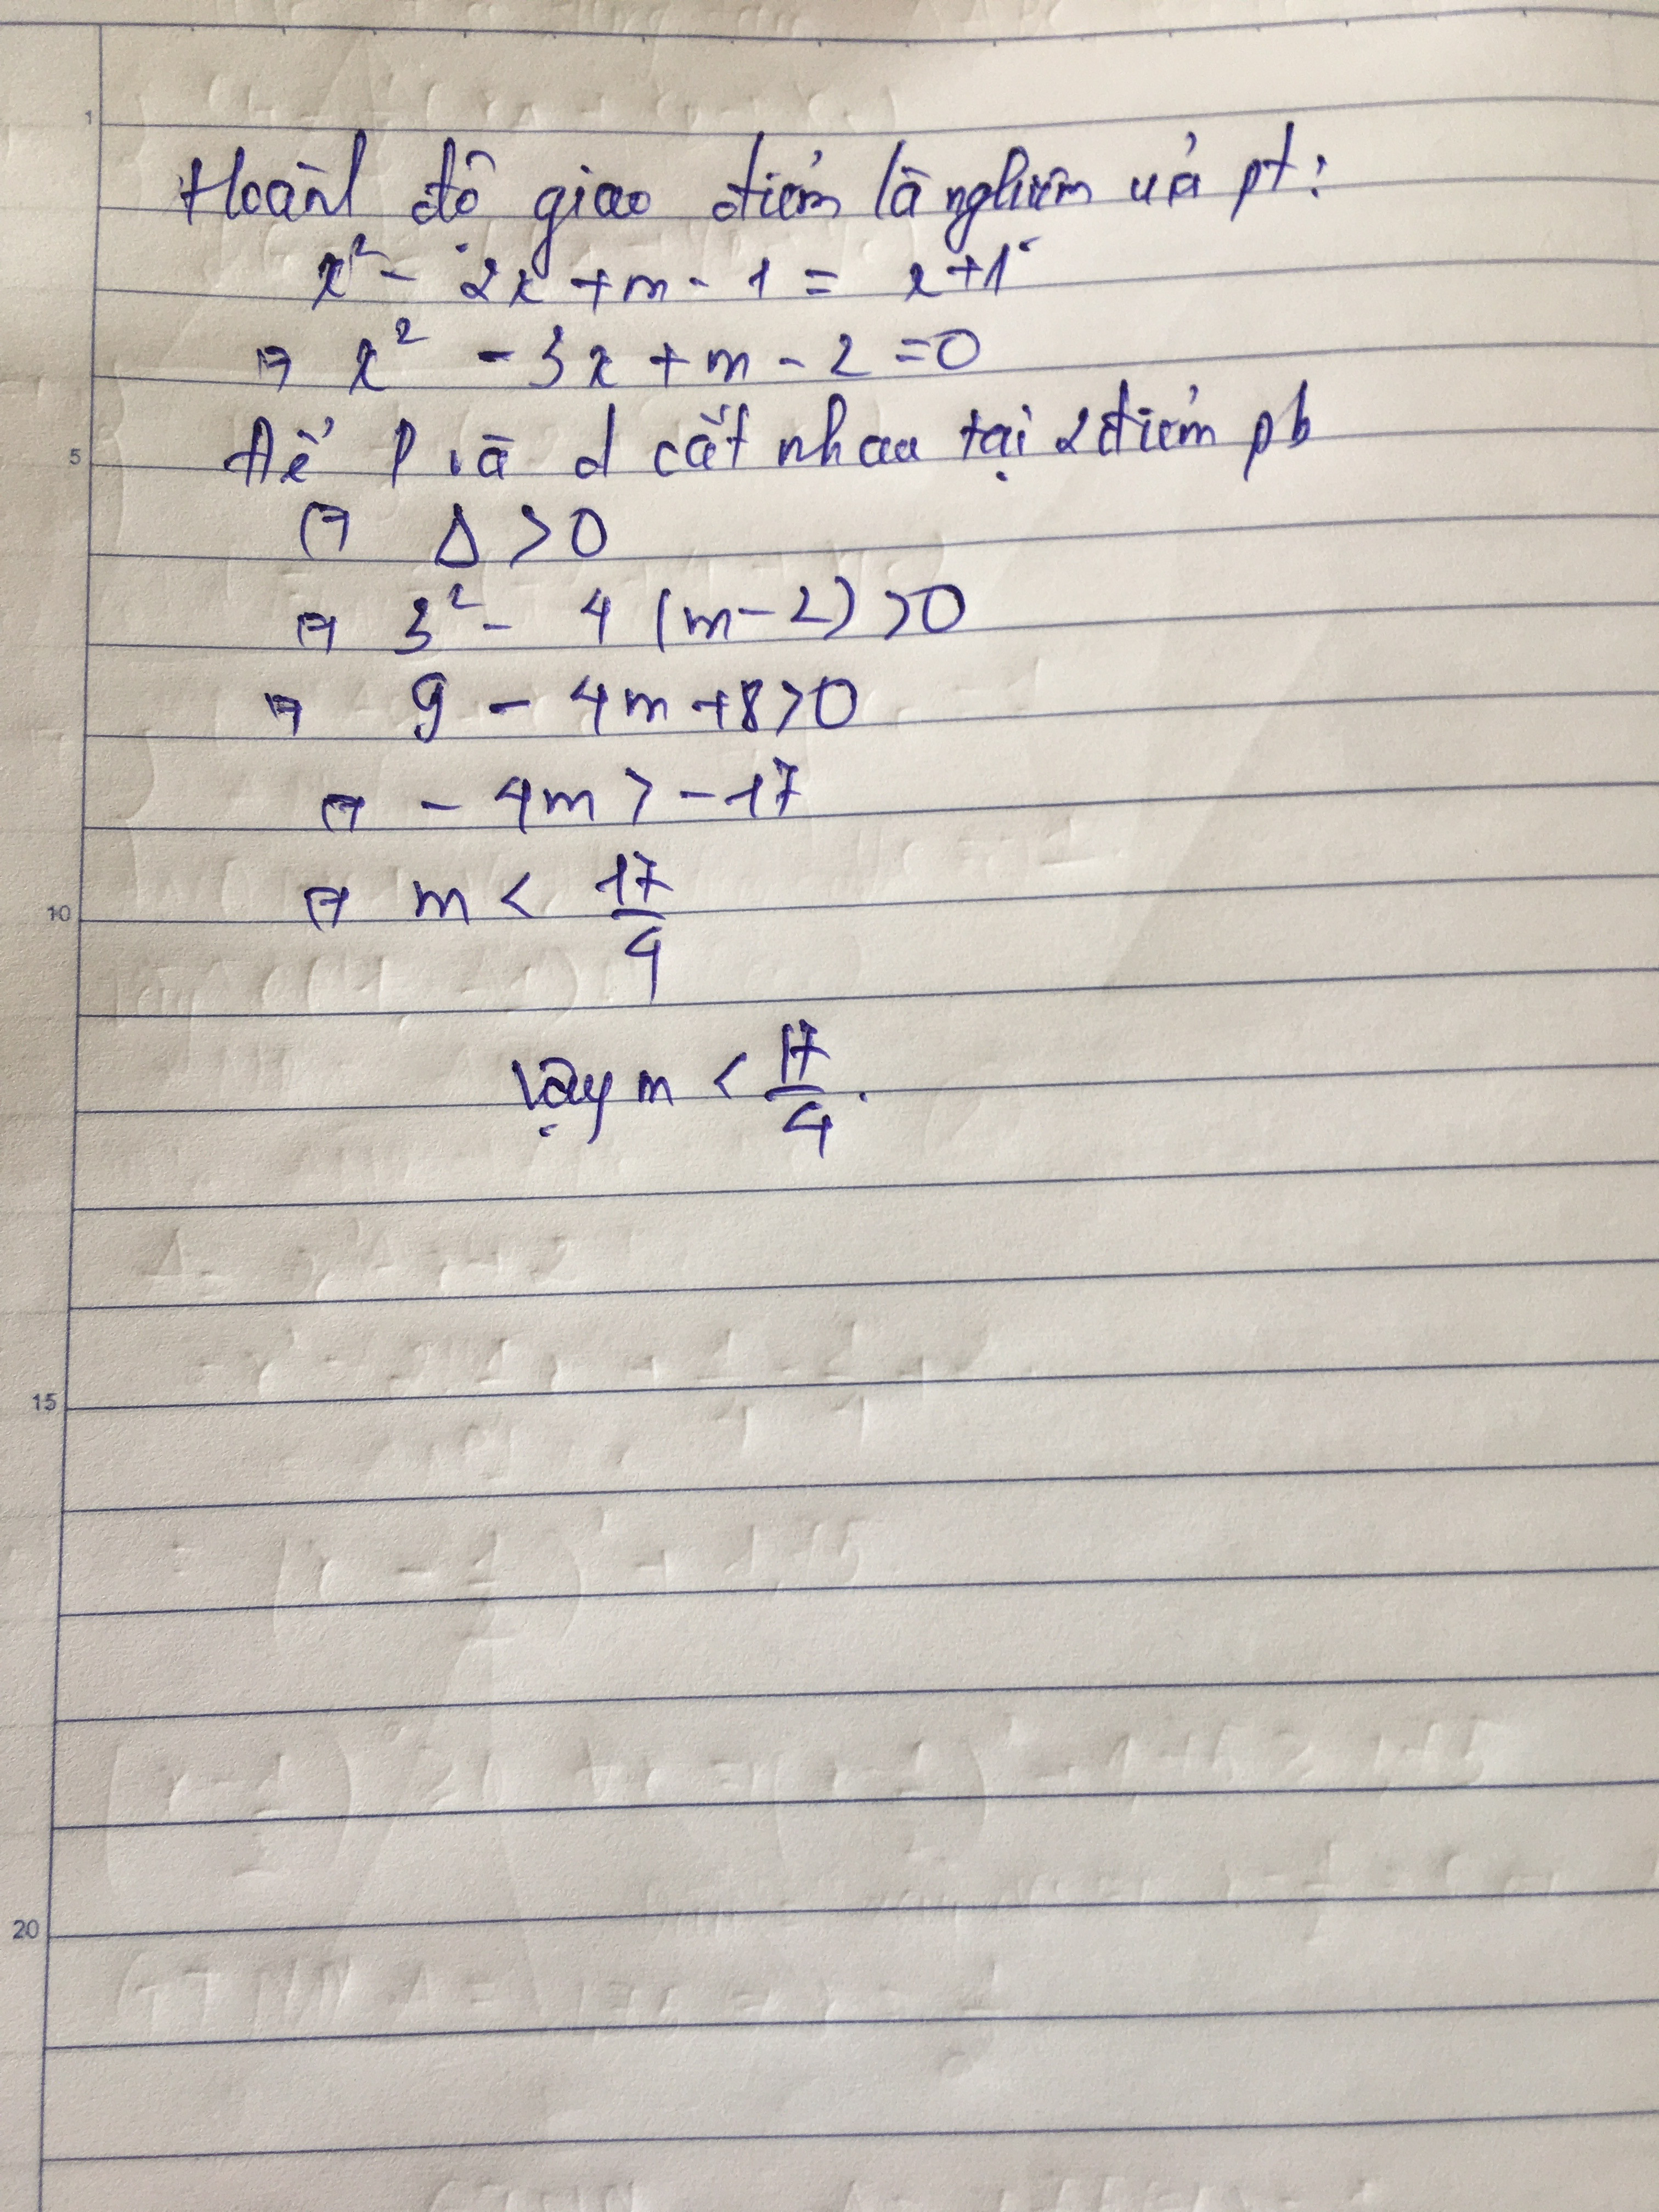 1
Hoành độ giao điểm là nghiệm của pt:
x² - 2x + m - 1 = x + 1
⇔ x² - 3x + m - 2 = 0
Để P và d cắt nhau tại 2 điểm pb
5
⇔ Δ > 0
⇔ 3² - 4 (m - 2) > 0
⇔ 9 - 4m + 8 > 0
⇔ - 4m > - 17
⇔ m < 17/4
10
Vậy m < 17/4.
15
20